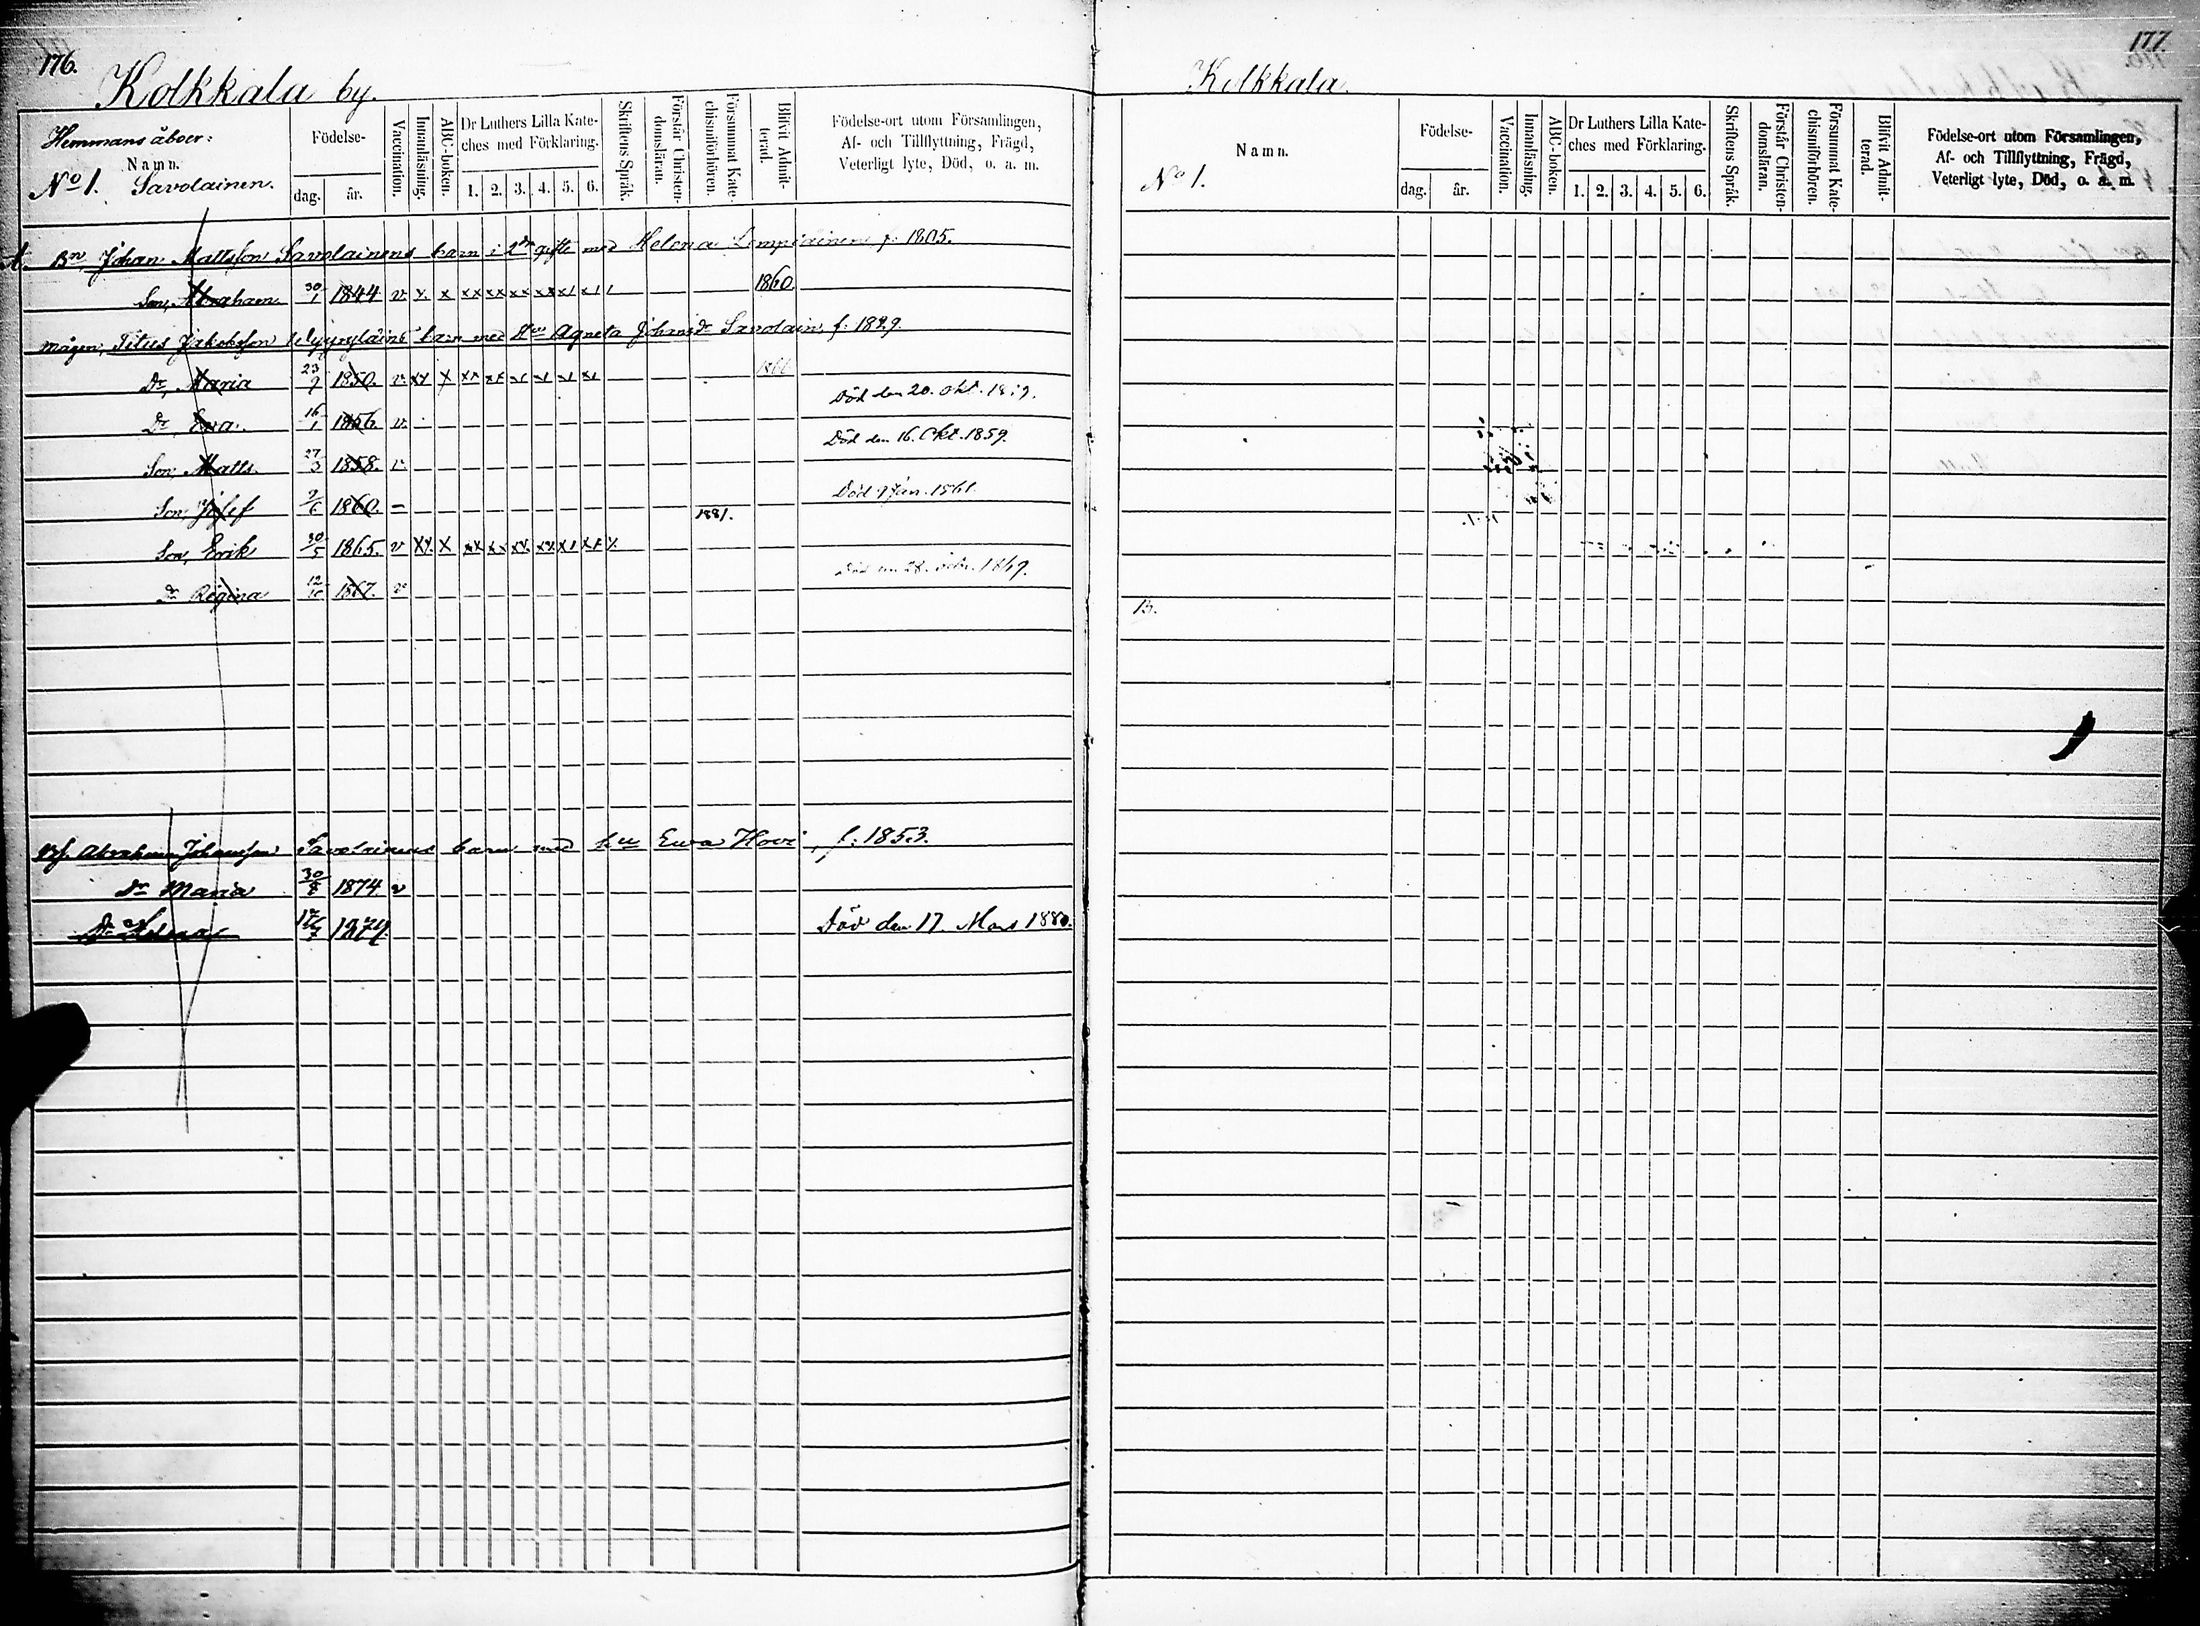 176.
Kolkkala by.
Hemmans åboer:
Namn.
No 1. Savolainen.
Födelse-
dag. år.
Vaccination.
Innanläsning.
ABC-boken.
Dr Luthers Lilla Kate-
ches med Förklaring.
1. 2. 3. 4. 5. 6.
Skriftens Språk.
Förstår Christen-
domsläran.
Försummat Kate-
chismiförhören.
Blifvit Admit-
terad.
Födelse-ort utom Församlingen,
Af- och Tillflyttning, Frägd,
Veterligt lyte, Död, o. a. m.
A. Bn Johan Mattsson Savolainens barn i 2dra gifte med Helena Lempiäinen f. 1805.
Son, Abraham 30/1 1844 v. x x xx xx xx xx x1 x1 1 1860
Mågen, Titus Jakobsson barn med Hu Agneta Johansdr Savolain, f. 1829.
Dr, Maria 23/9 1850. v. xx x xx xx x1 x1 x1 x1 1866
Död den 20. Okt.
Dr, Eva. 16/1 1856 v.
Död den 16. Okt. 1859.
Son, Matts. 27/3 1858. v.
Död 9 Jan. 1861.
Son, Josef 9/6 1860. –
1881.
Son, Erik 30/5 1865. v xx x xx xx xx xx x1 xx x
Död den 28. 1869.
Dr Regina 12/10 1867. v
Abraham Johansson Savolainens barn med hu Ewa Hovi, f: 1853.
Dr Maria 30/8 1874 v
Dr Helena 1879
Död den 17. Mars 1880.
177.
Kolkkala.
Namn.
No 1.
Födelse-
dag. år.
Vaccination.
Innanläsning.
ABC-boken.
Dr Luthers Lilla Kate-
ches med Förklaring.
1. 2. 3. 4. 5. 6.
Skriftens Språk.
Förstår Christen-
domsläran.
Försummat Kate-
chismiförhören.
Blifvit Admit-
terad.
Födelse-ort utom Församlingen,
Af- och Tillflyttning, Frägd,
Veterligt lyte, Död, o. a. m.
B.